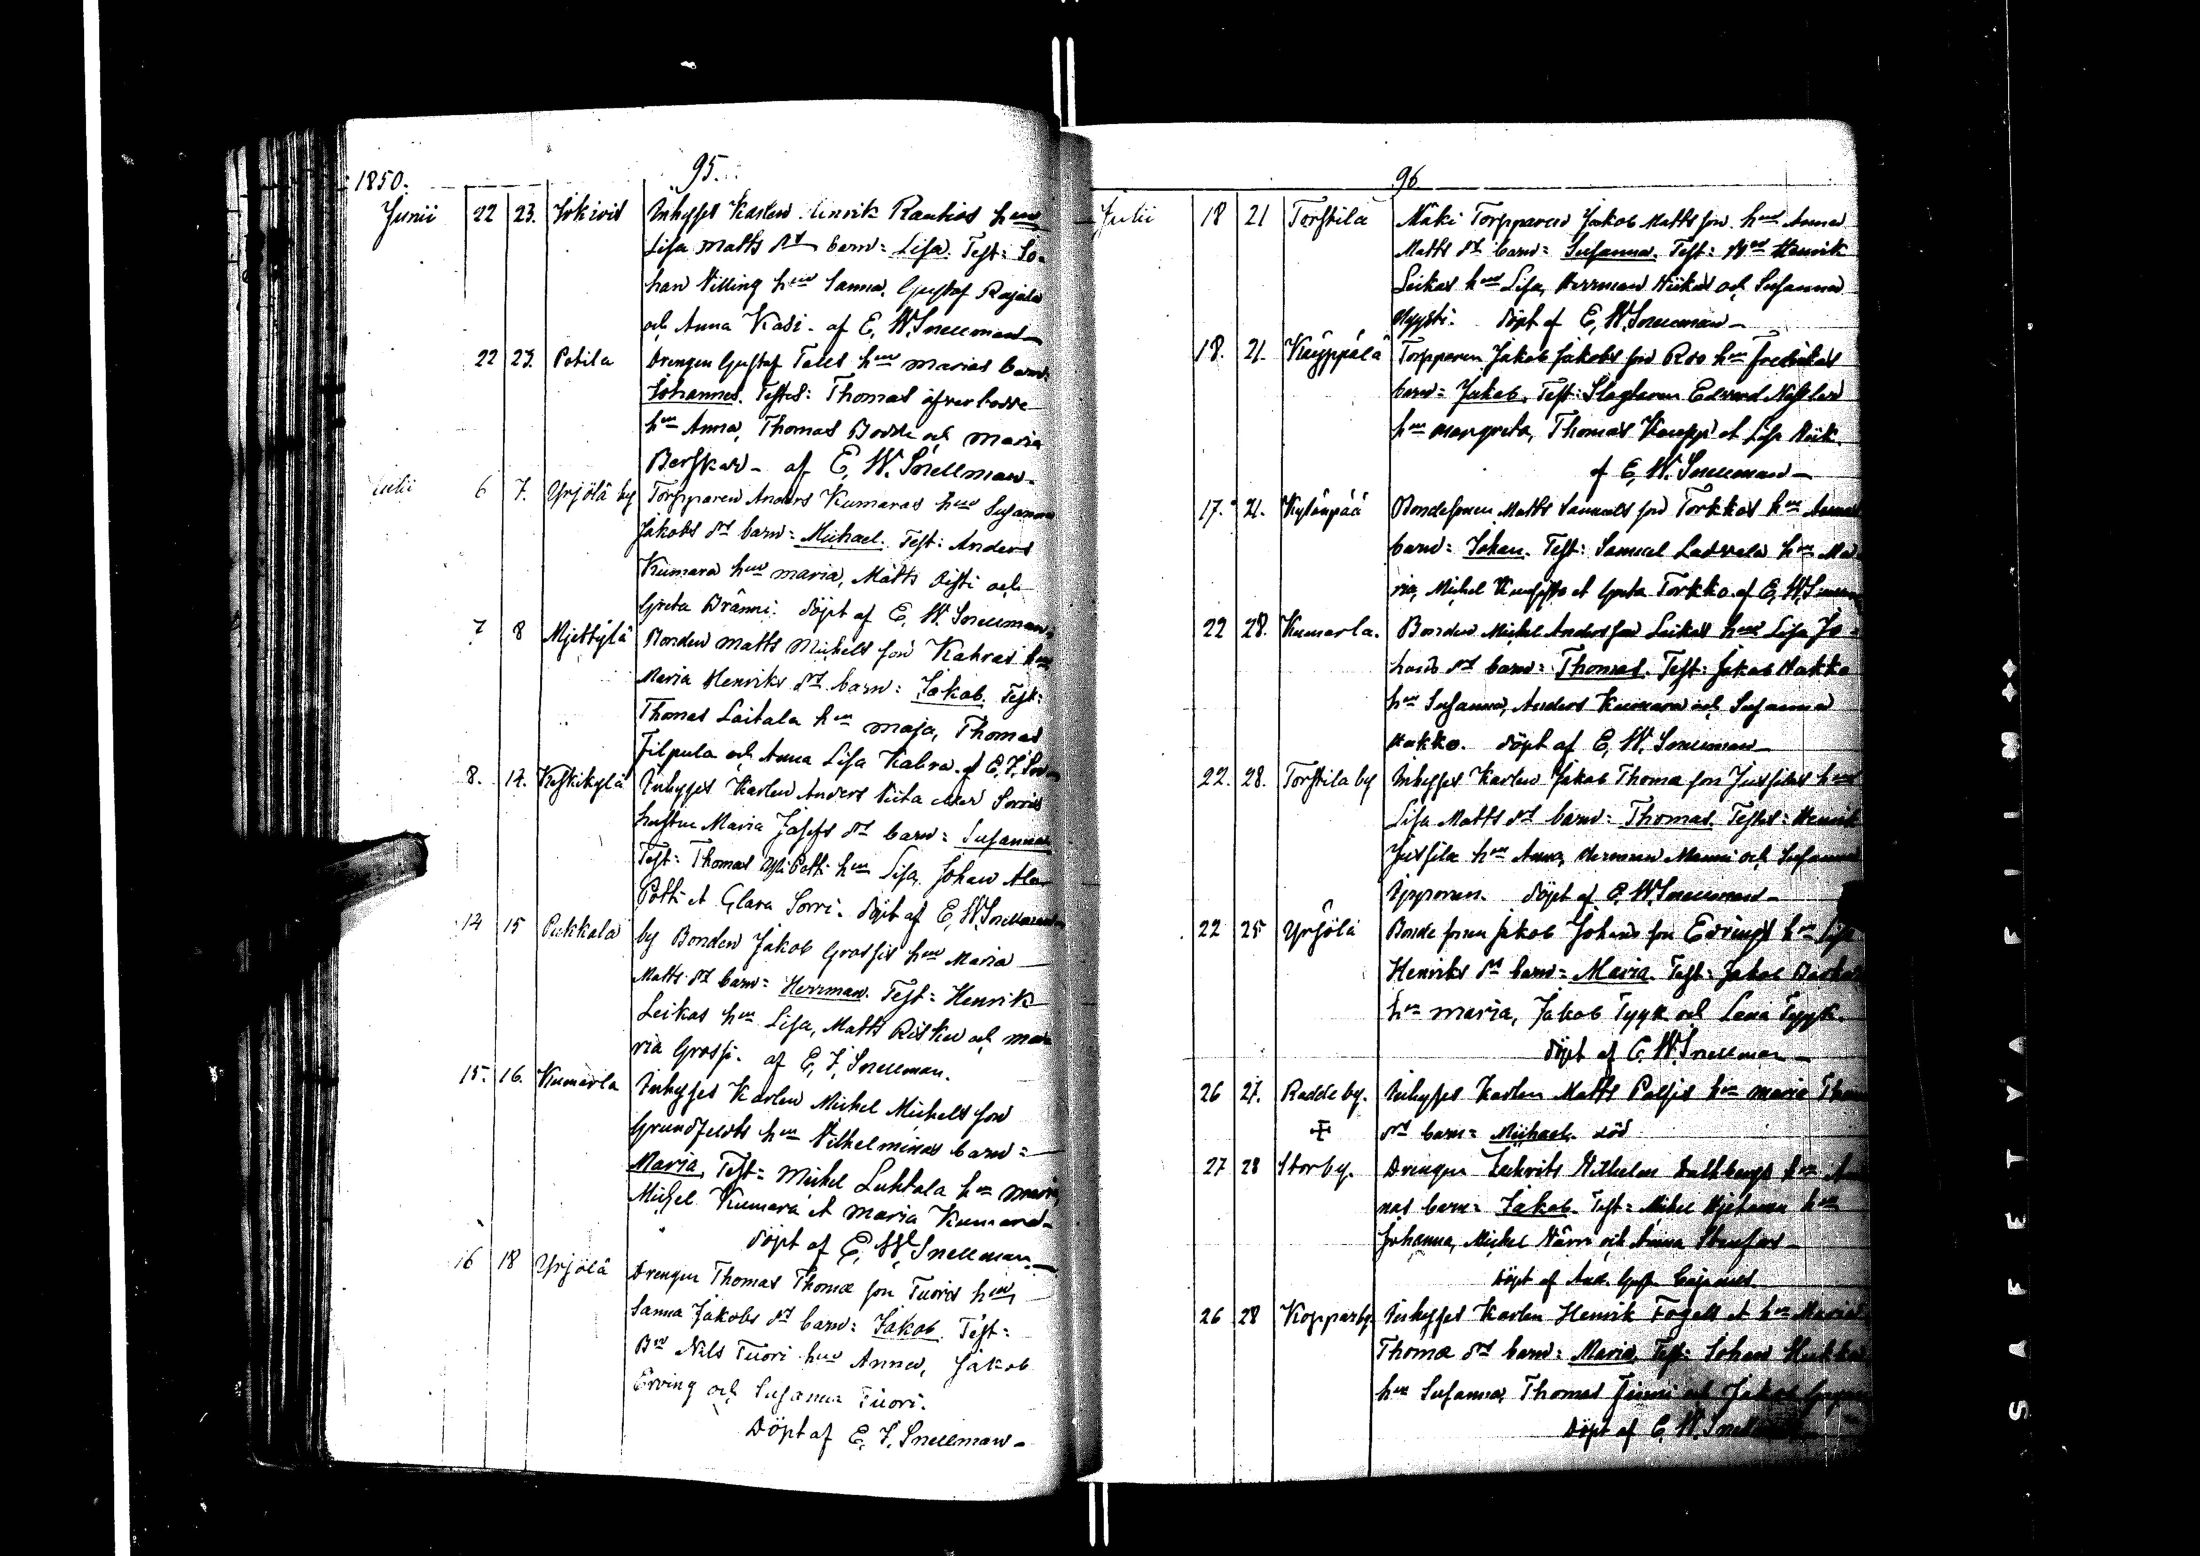 95.
1850.
Junii 22 23. Inhyses Karlen Henrik Rautios hrus
Lisa Matts dr barn: Lisa. Test: Jo-
han Villing hru Sanna, Gustaf Rajala
och Anna Kasi. af E. W. Snellman
22 23. Potila Drengen Gustaf Talls hrus Marias barn:
Johannes. Testes: Thomas
hru Anna, Thomas och Maria
af E. W. Snellman.
Julii 6 7. Yrjölä by Torpparen Anders Kumaras hrus Susanna
Jakobs dr barn: Michael. Test: Anders
Kumara hru Maria, Matts och
Greta Bränni. döpt af E. W. Snellman.
7 8 Mjettylä Bonden Matts Michels son Kahras hrus
Maria Henriks dr barn: Jakob. Test:
Thomas Laitala hru Maja, Thomas
Filpula och Anna Lisa Kahra. af E. J. Sn
8. 14. Keskikylä Inhyses Karlen Anders Viita eller Sorris
hustru Maria Josefs dr barn: Susanna
Test: Thomas Yli Potti hru Lisa, Johan Ala
Potti et Clara Sorri. döpt af E. W. Snellman
14 15 Pukkala by Bonden Jakob Grossis hrus Maria
Matts dr barn: Herrman. Test: Henrik
Leikas hru Lisa, Matts Risku och Ma
ria Grossi. af E. J. Snellman.
15. 16. Kumarla Inhyses Karlen Michel Michels son
Grundfeldts hrus Vilhelminas barn:
Maria. Test: Michel Luhtala hru Maria
Michel Kumara et Maria Kumara
döpt af E. W. Snellman.
16 18 Yrjölä Drengen Thomas Thomæ son Tuoris hrus
Sanna Jakobs dr barn: Jakob. Test:
Bn Nils Tuori hru Anna, Jakob
Erving och Susanna Tuori.
Döpt af E. J. Snellman.
96
Julii 18 21 Torstila Mäki Torpparen Jakob Matts son hrus Anna
Matts dr barn: Susanna. Test: Henrik
Leikas hru Lisa, Herrman Leikas och Susanna
döpt af E. W. Snellman
18. 21. Kauppälä Torpparen Jakob Jakobs son Roo hrus Fredrikas
barn: Jakob. Test: Slagtaren Edvard Nestler
hru Margreta, Thomas Kauppi et Lisa
af E. W. Snellman
17. 21. Kylänpää Bondesonen Matts Samuels son Torkkos hrus Annas
barn: Johan. Test: Samuel Ladvala hru Ma
ria, Michel et Greta Torkko. af E. W. Snellman
22 28. Kumarla. Bonden Michel Anders son Leikas hrus Lisa Jo-
hans dr barn: Thomas. Test: Jakob Hakko
hru Susanna, Anders Kumara och Susanna
Hakko. döpt af E. W. Snellman
22. 28. Torstila by Inhyses Karlen Jakob Thomæ son Jussilas hrus
Lisa Matts dr barn: Thomas. Testes: Henrik
Jussila hru Anna, Herrman Manni och Susanna
Ypponen. döpt af E. W. Snellman
22 25 Yrjölä Bonde sonen Jakob Johans son Ervings hrus Lisa
Henriks dr barn: Maria. Test: Jakob
hru Maria, Jakob Tyyk och Lena Tyyk.
Döpt af E. W. Snellman
26 27. Radde by. Inhyses Karlen Matts Palsis hrus Maria Thomæ
dr barn: Michael. död
27 28 Storby. Drengen Zachris Wilhelm Dahlbergs hrus An
nas barn: Jakob. Test: Michel hru
Johanna, Michel Närvi och Anna Stenfors
Döpt af And. Gust. Cajanus
26 28 Kopparby. Inhyses Karlen Henrik Fogell et hrus Maria
Thomæ dr barn: Maria. Test: Johan
hru Susanna, Thomas och Jakob
Döpt af E. W. Snellman
SAFETY FILM